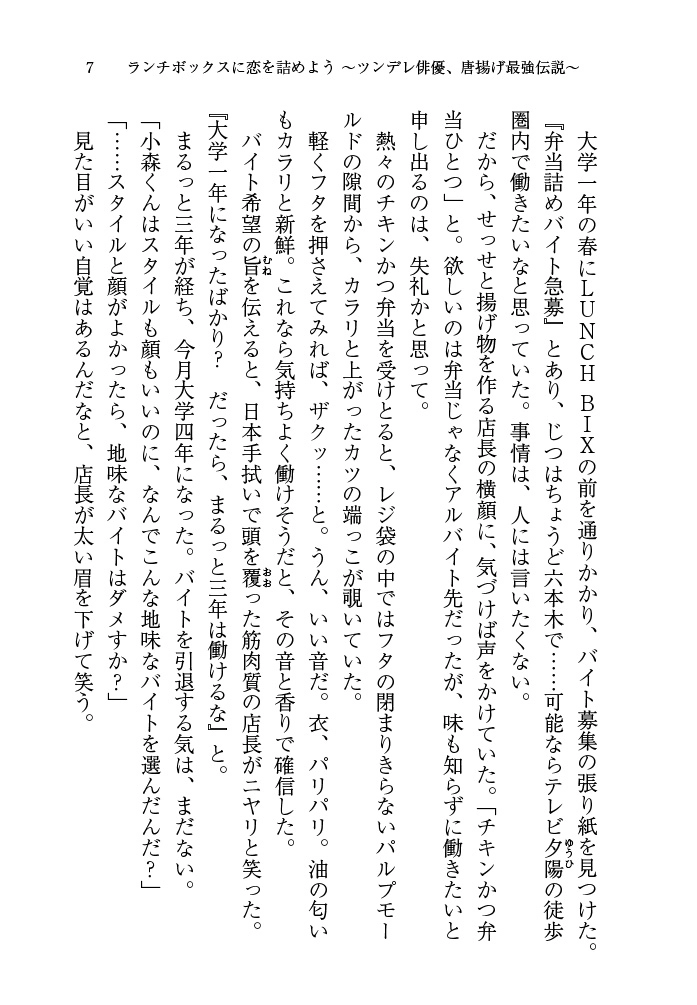 7　ランチボックスに恋を詰めよう ～ツンデレ俳優、唐揚げ最強伝説～
大学一年の春にＬＵＮＣＨ　ＢＩＸの前を通りかかり、バイト募集の張り紙を見つけた。
『弁当詰めバイト急募』とあり、じつはちょうど六本木で……可能ならテレビ夕陽の徒歩
圏内で働きたいなと思っていた。事情は、人には言いたくない。
だから、せっせと揚げ物を作る店長の横顔に、気づけば声をかけていた。「チキンかつ弁
当ひとつ」と。欲しいのは弁当じゃなくアルバイト先だったが、味も知らずに働きたいと
申し出るのは、失礼かと思って。
熱々のチキンかつ弁当を受けとると、レジ袋の中ではフタの閉まりきらないパルプモー
ルドの隙間から、カラリと上がったカツの端っこが覗いていた。
軽くフタを押さえてみれば、ザクッ……と。うん、いい音だ。衣、パリパリ。油の匂い
もカラリと新鮮。これなら気持ちよく働けそうだと、その音と香りで確信した。
バイト希望の旨を伝えると、日本手拭いで頭を覆った筋肉質の店長がニヤリと笑った。
『大学一年になったばかり？　だったら、まるっと三年は働けるな』と。
まるっと三年が経ち、今月大学四年になった。バイトを引退する気は、まだない。
「小森くんはスタイルも顔もいいのに、なんでこんな地味なバイトを選んだんだ？」
「……スタイルと顔がよかったら、地味なバイトはダメすか？」
見た目がいい自覚はあるんだなと、店長が太い眉を下げて笑う。